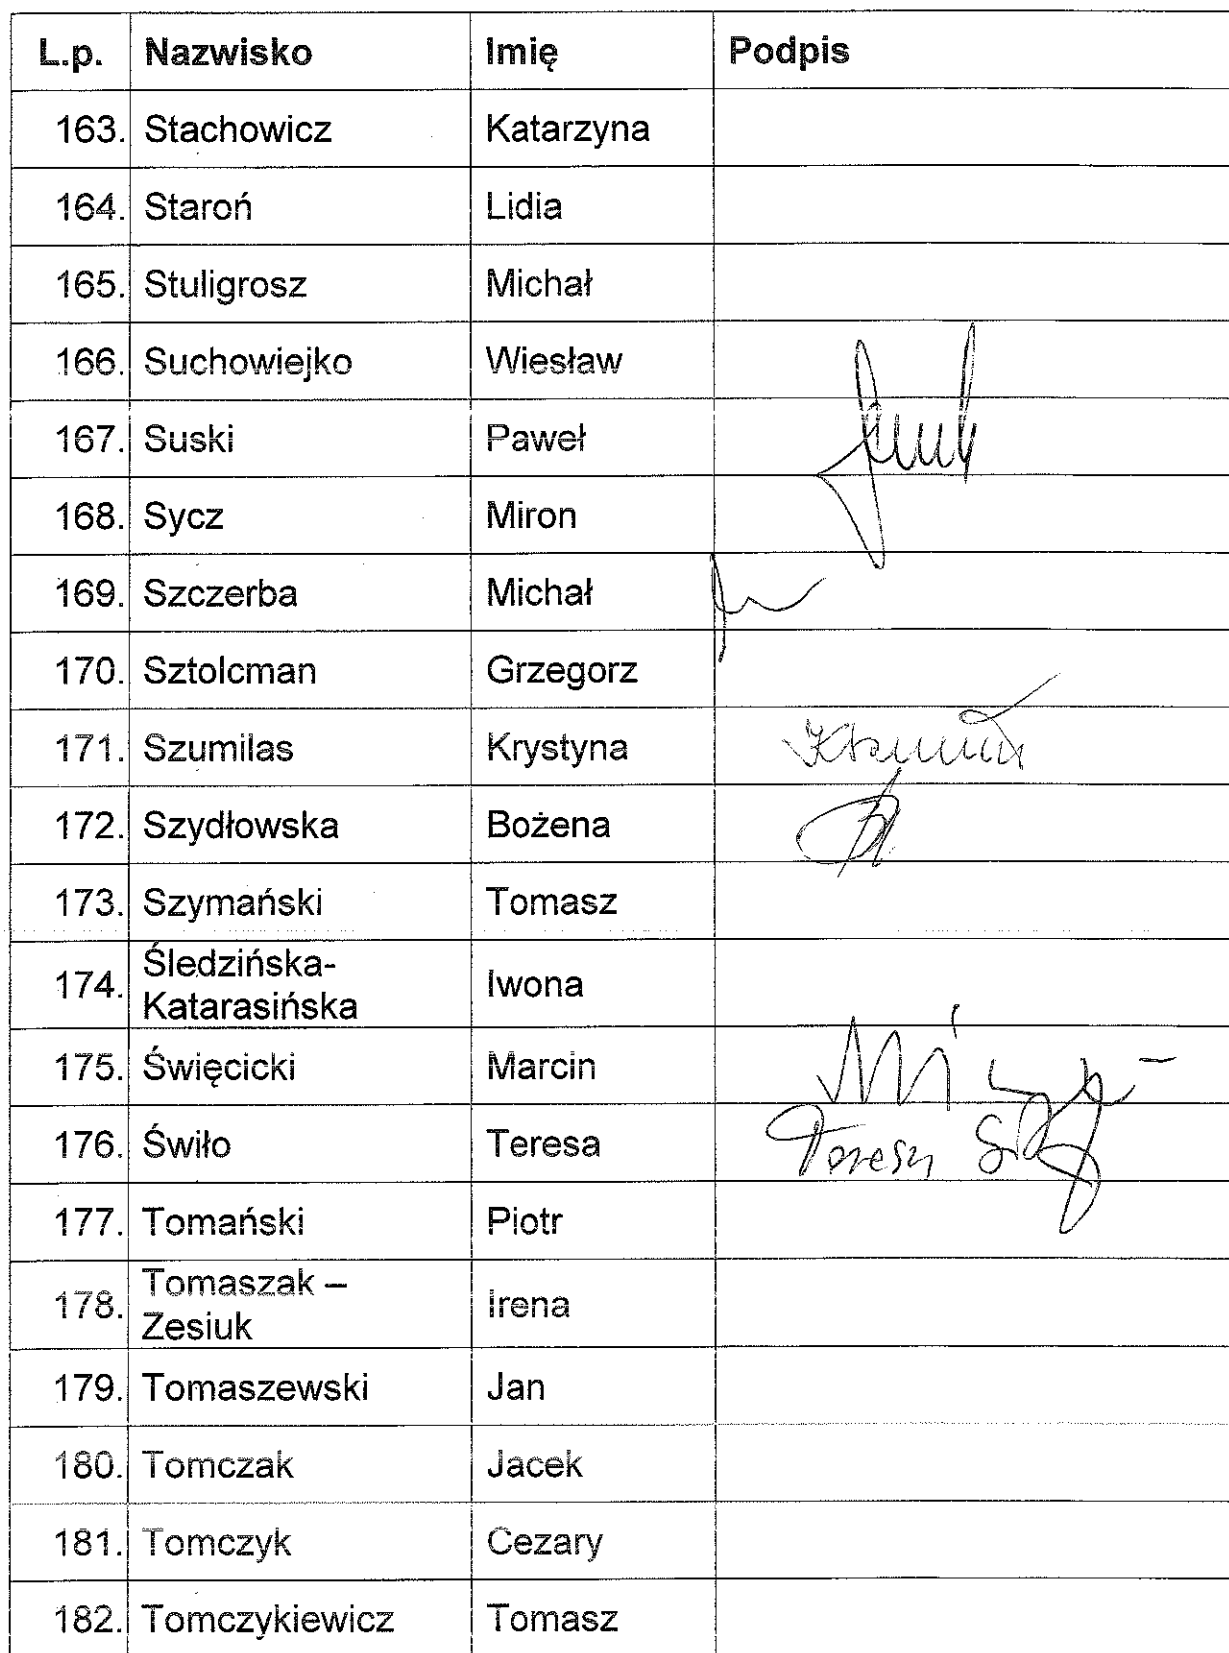 L.p. Nazwisko Imię Podpis
163. Stachowicz Katarzyna
164. Staroń Lidia
165. Stuligrosz Michał
166. Suchowiejko Wiesław
167. Suski Paweł
168. Sycz Miron
169. Szczerba Michał
170. Sztolcman Grzegorz
171. Szumilas Krystyna
172. Szydłowska Bożena
173. Szymański Tomasz
174. Śledzińska-
Katarasińska Iwona
175. Święcicki Marcin
176. Świło Teresa Teresa
177. Tomański Piotr
178. Tomaszak –
Zesiuk Irena
179. Tomaszewski Jan
180. Tomczak Jacek
181. Tomczyk Cezary
182. Tomczykiewicz Tomasz